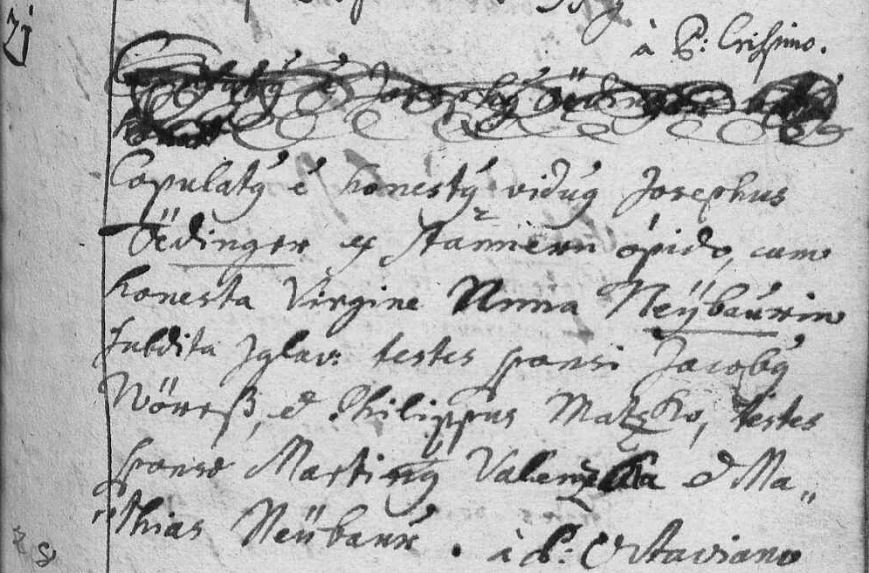 à P: Crispino.
Copulatq ē Josephq Ödinger
Copulatq ē honestq viduq Josephus
Ödinger ex Stannern opido, cum
honesta Virgine Anna Neÿbaúrin
subdita Iglav: testes sponsi Jacobq
Wöreß, et Philippus Matzko, testes
sponsæ Martinq Valenzka et Ma„
„thias Neübaúr. à P: Octaviano